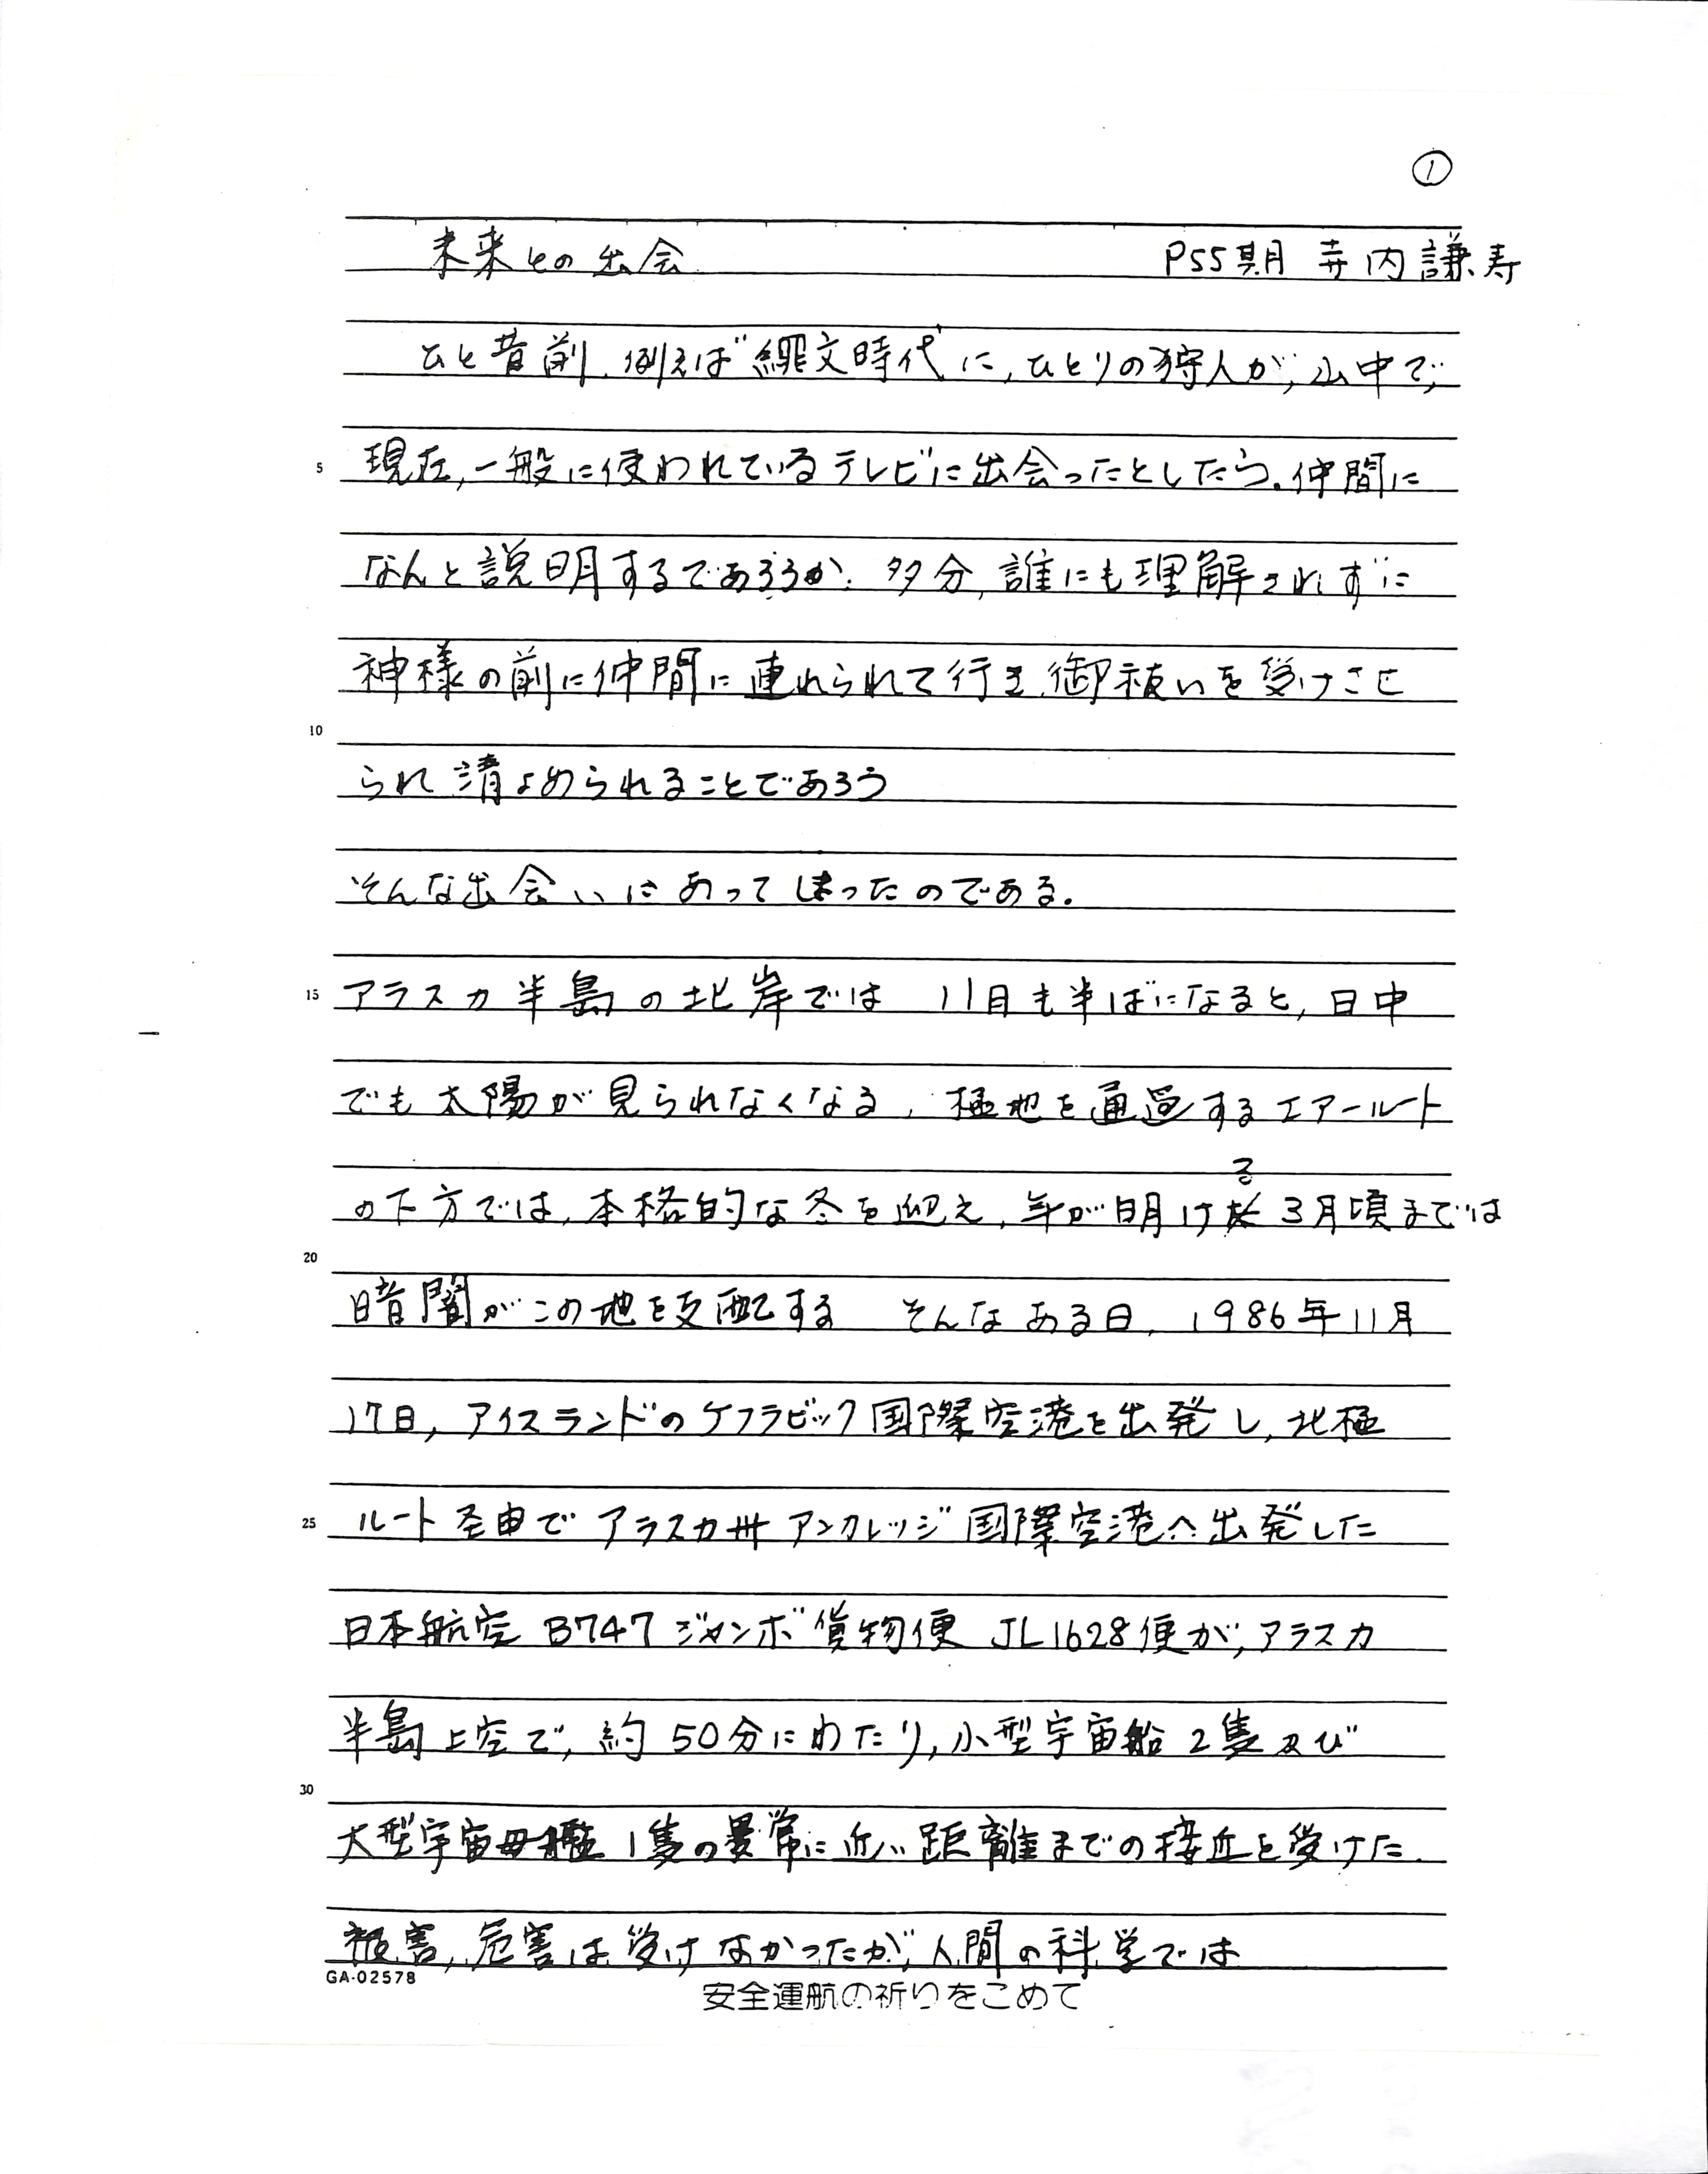 ①
未来との出会 P55期 寺内謙寿
ひと昔前、例えば"縄文時代"に、ひとりの狩人が、山中で、
5 現在、一般に使われているテレビに出会ったとしたら、仲間に
なんと説明するであろうか、多分、誰にも理解されずに
神様の前に仲間に連れられて行き、御祓いを受けさせ
10
られ清よめられることであろう
そんな出会いにあってしまったのである。
15 アラスカ半島の北岸では 11月も半ばになると、日中
でも太陽が見られなくなる、極地を通過するエアールート
の下方では、本格的な冬を迎え、年が明ける3月頃までは
20
暗闇がこの地を支配する そんなある日、1986年11月
17日、アイスランドのケフラビック国際空港を出発し、北極
25 ルート圣由でアラスカ州アンカレッジ国際空港へ出発した
日本航空 B747ジャンボ貨物便 JL1628便が、アラスカ
半島上空で、約50分にわたり、小型宇宙船2隻及び
30
大型宇宙母艦1隻の異常に近い距離までの接近を受けた.
被害、危害は受けなかったが、人間の科学では
GA-02578
安全運航の祈りをこめて